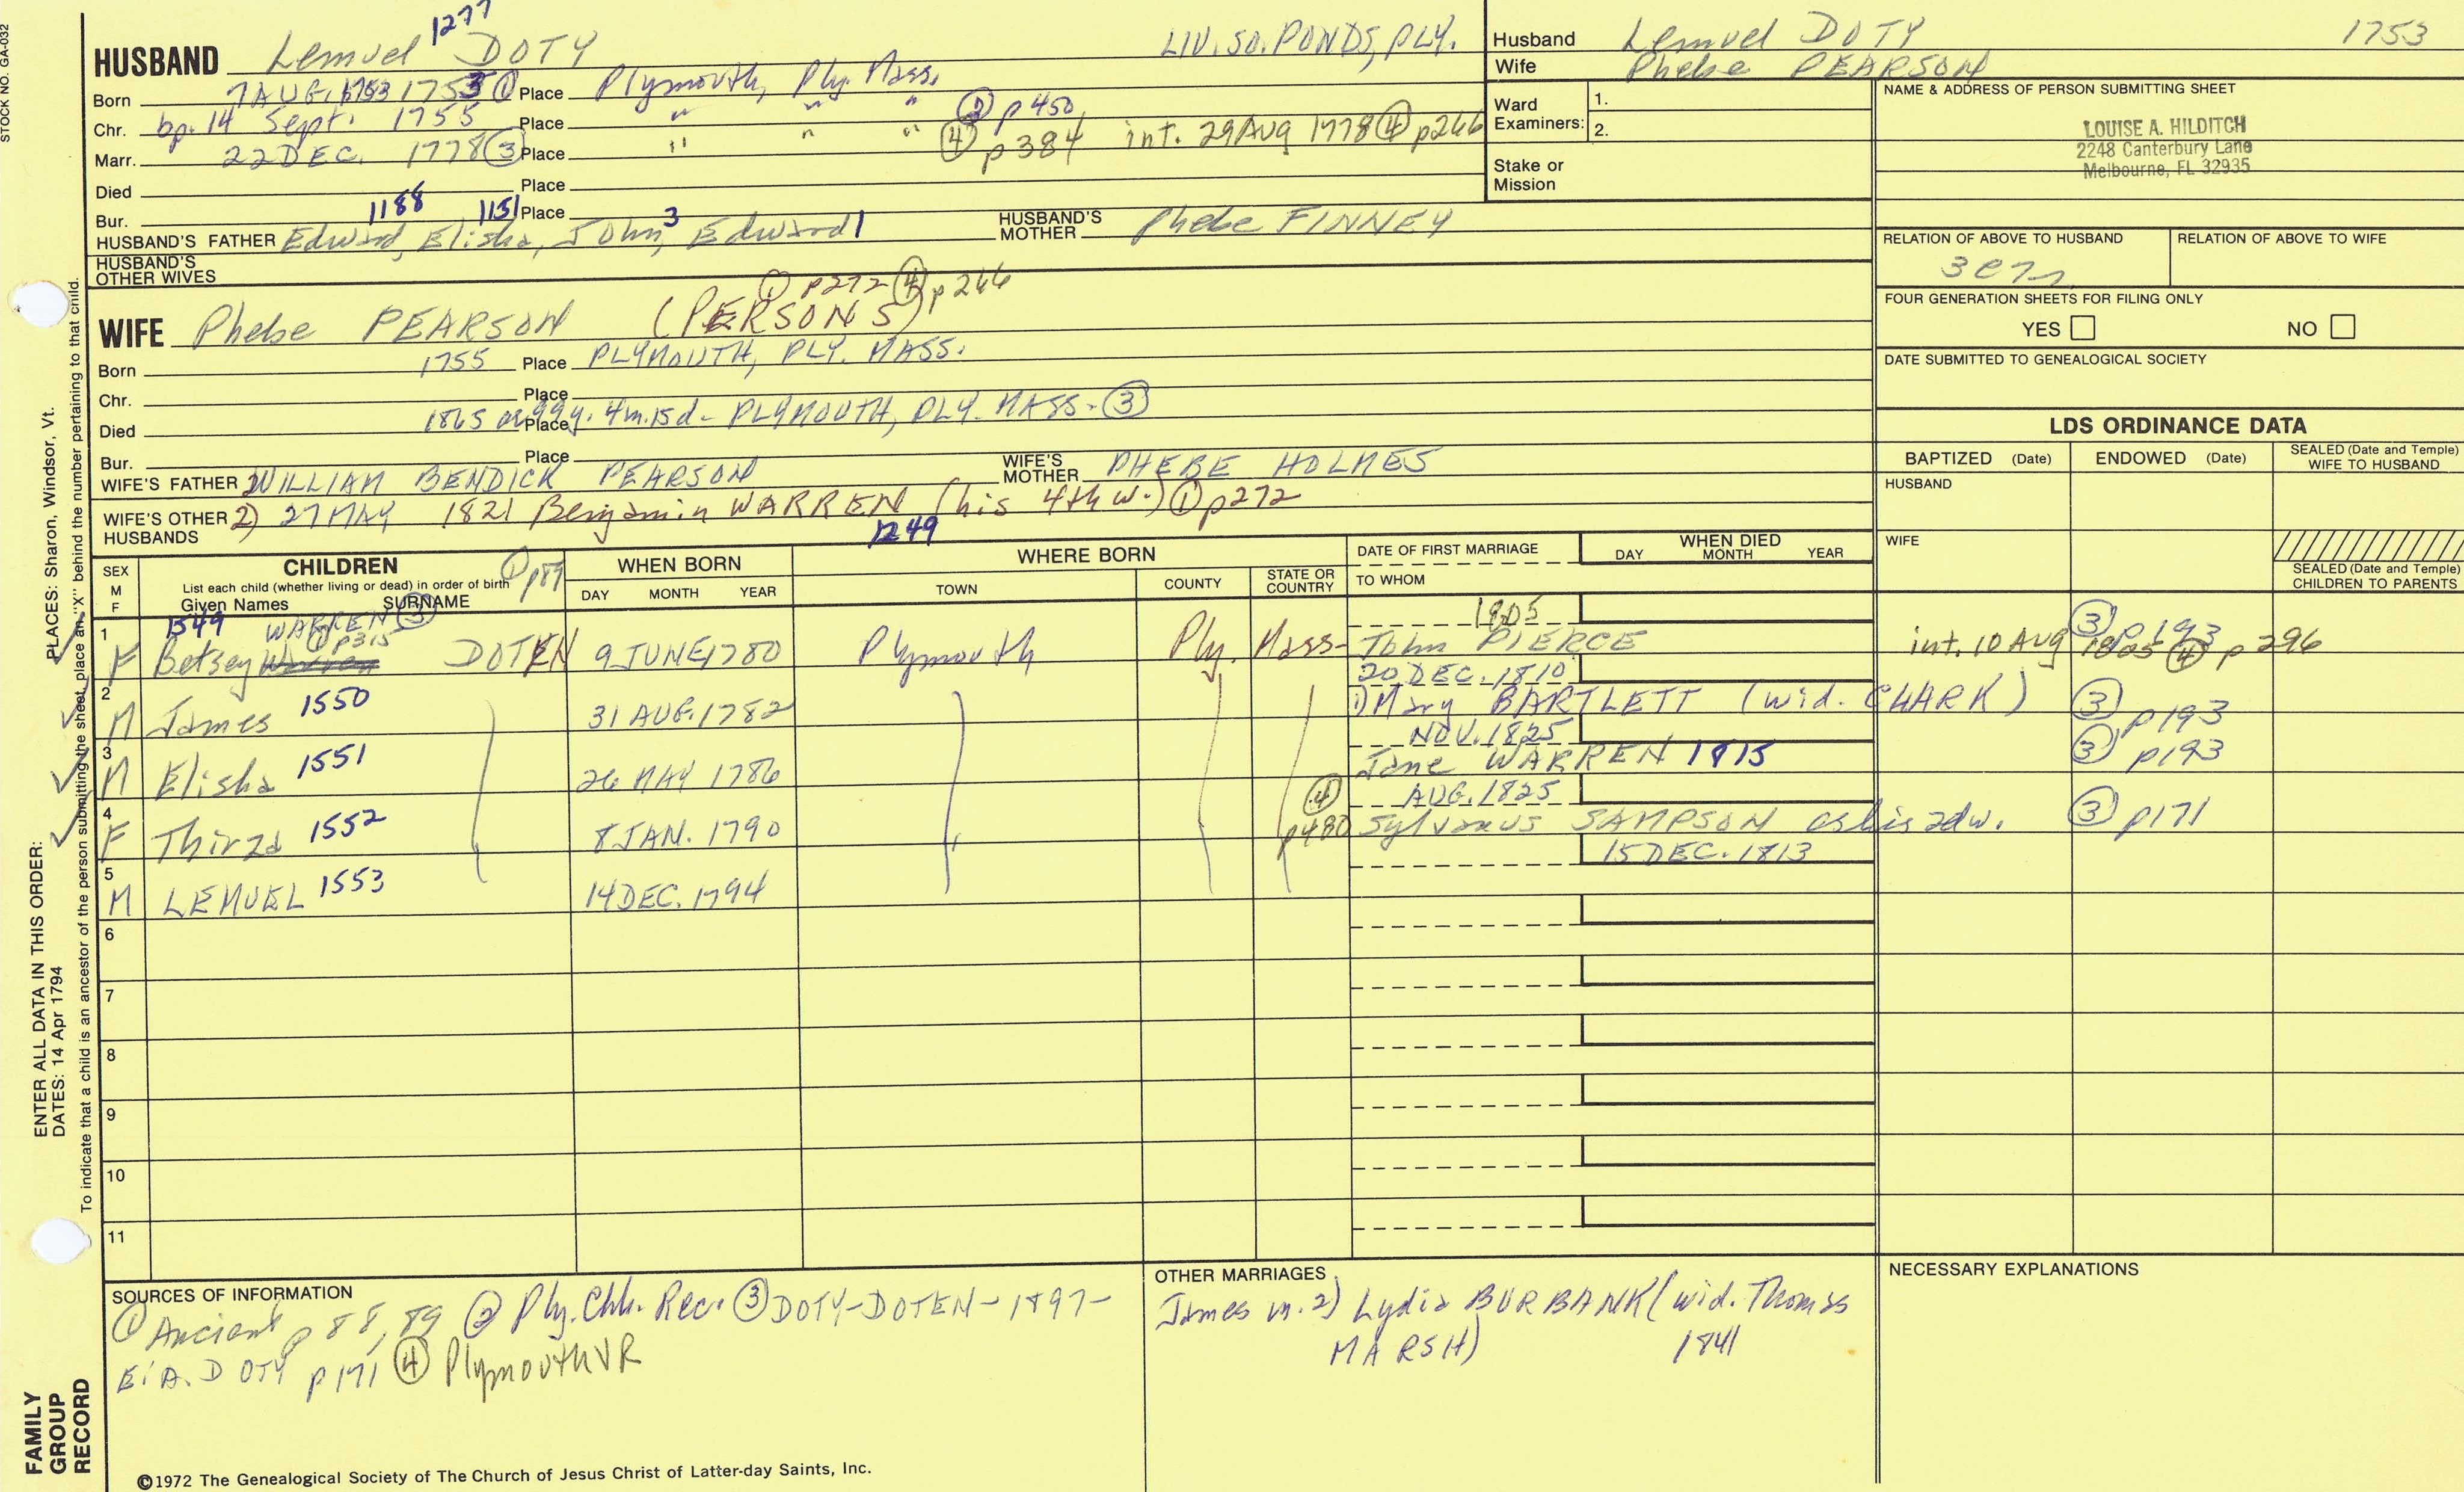 STOCK NO. GA-032
1277
HUSBAND Lemuel DOTY LIV. SO. PONDS, PLY.
Born 7 AUG. 1753 1753 ① Place Plymouth, Ply. Mass.
Chr. bp. 14 Sept. 1755 Place " " " ② p450
Marr. 22 DEC. 1778 ③ Place " ④ p384 int. 29 Aug 1778 ④ p266
Died Place
Bur. Place
1188 1151 3
HUSBAND'S FATHER Edward, Elisha, John, Edward1 HUSBAND'S MOTHER Phebe FINNEY
HUSBAND'S OTHER WIVES
① p272 ④ p266
WIFE Phebe PEARSON (PERSONS)
Born 1755 Place PLYMOUTH, PLY. MASS.
Chr. Place
Died 1865 99y. 4m. 15d - Place PLYMOUTH, PLY. MASS. - ③
Bur. Place
WIFE'S FATHER WILLIAM BENDICK PEARSON WIFE'S MOTHER PHEBE HOLMES
WIFE'S OTHER HUSBANDS 2) 27 MAY 1821 Benjamin WARREN (his 4th w.) ① p272
1249
Husband Lemuel DOTY 1753
Wife Phebe PEARSON
Ward Examiners: 1.
2.
Stake or Mission
NAME & ADDRESS OF PERSON SUBMITTING SHEET
LOUISE A. HILDITCH
2248 Canterbury Lane
Melbourne, FL 32935
RELATION OF ABOVE TO HUSBAND RELATION OF ABOVE TO WIFE
FOUR GENERATION SHEETS FOR FILING ONLY
YES NO
DATE SUBMITTED TO GENEALOGICAL SOCIETY
LDS ORDINANCE DATA
BAPTIZED (Date) ENDOWED (Date) SEALED (Date and Temple) WIFE TO HUSBAND
HUSBAND
WIFE
SEALED (Date and Temple) CHILDREN TO PARENTS
SEX M F
CHILDREN ① p89
List each child (whether living or dead) in order of birth
Given Names SURNAME
WHEN BORN
DAY MONTH YEAR
WHERE BORN
TOWN COUNTY STATE OR COUNTRY
DATE OF FIRST MARRIAGE
TO WHOM
WHEN DIED
DAY MONTH YEAR
1549 WARREN ③
① p315 1805 ③ p193
1 F Betsey Warren DOTEN 9 JUNE 1780 Plymouth Ply. Mass- John PIERCE int. 10 Aug 1805 ④ p296
20 DEC. 1810
2 M James 1550 31 AUG. 1782 1) Mary BARTLETT (wid. CLARK) ③ p193
NOV. 1825
3 M Elisha 1551 26 MAY 1786 Jane WARREN 1815 ③ p193
AUG. 1825
4 F Thirza 1552 8 JAN. 1790 ④ p480 Sylvanus SAMPSON as his 2dw. ③ p171
15 DEC. 1813
5 M LEMUEL 1553 14 DEC. 1794
6
7
8
9
10
11
SOURCES OF INFORMATION
① Ancient p 88, 89 ② Ply. Chh. Rec. ③ DOTY-DOTEN-1897-
E.A. DOTY p171 ④ Plymouth VR
OTHER MARRIAGES
James m. 2) Lydia BURBANK (wid. Thomas
MARSH) 1841
NECESSARY EXPLANATIONS
©1972 The Genealogical Society of The Church of Jesus Christ of Latter-day Saints, Inc.
FAMILY GROUP RECORD
ENTER ALL DATA IN THIS ORDER:
DATES: 14 Apr 1794 PLACES: Sharon, Windsor, Vt.
To indicate that a child is an ancestor of the person submitting the sheet, place an "X" behind the number pertaining to that child.